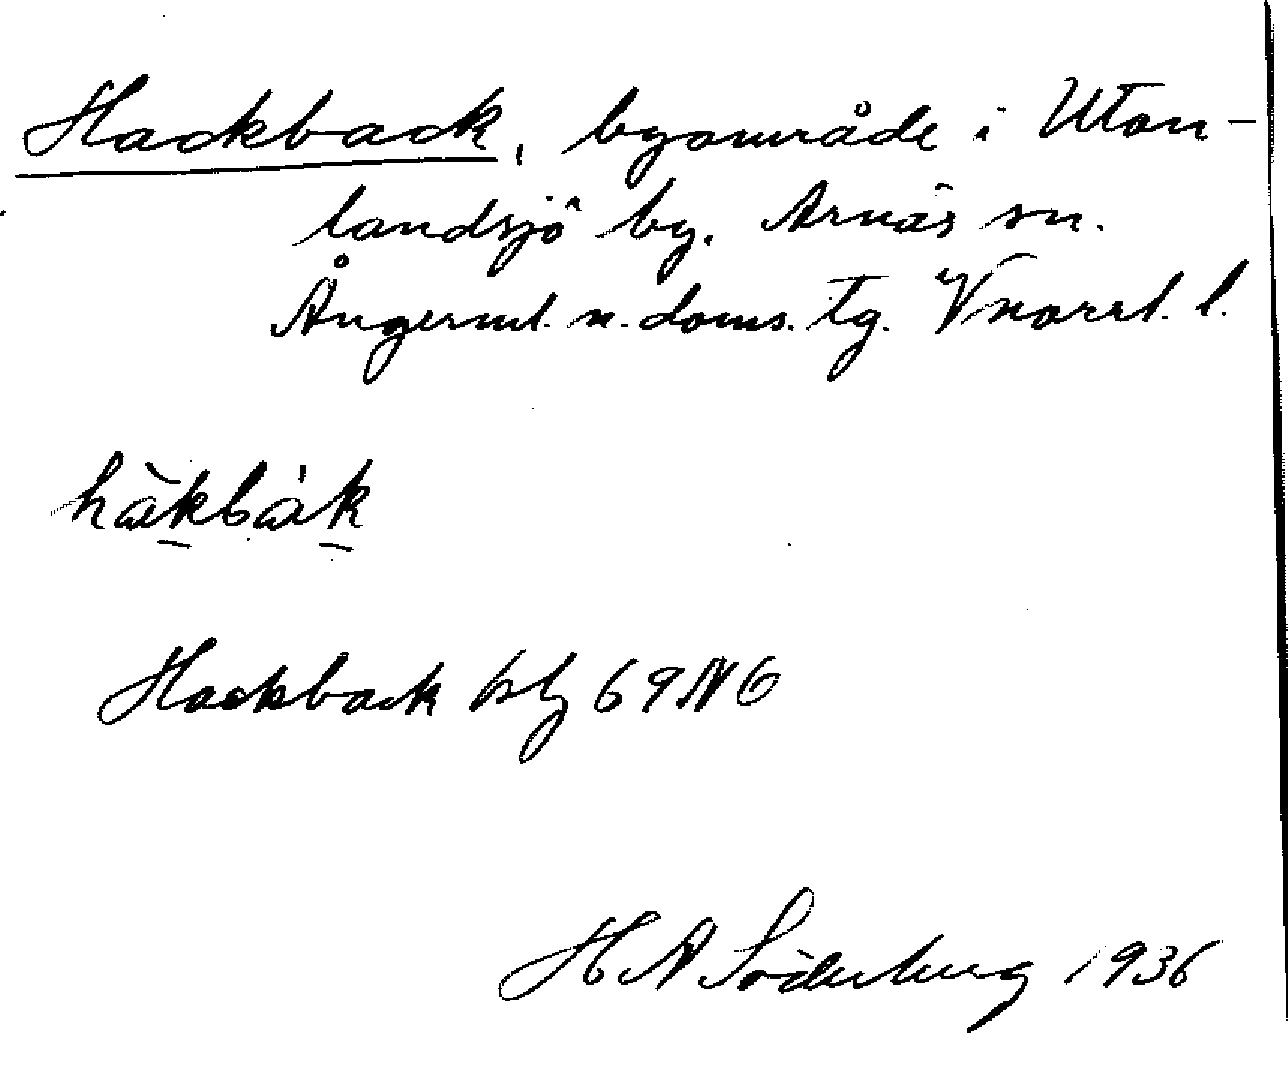 Hackback, byområde i Utan-
landsjö by, Arnäs sn.
Ångerml. n. doms. tg. Vnorrl. l.
hàkbák
Hackback blg 69 N 6
H A Söderberg 1936